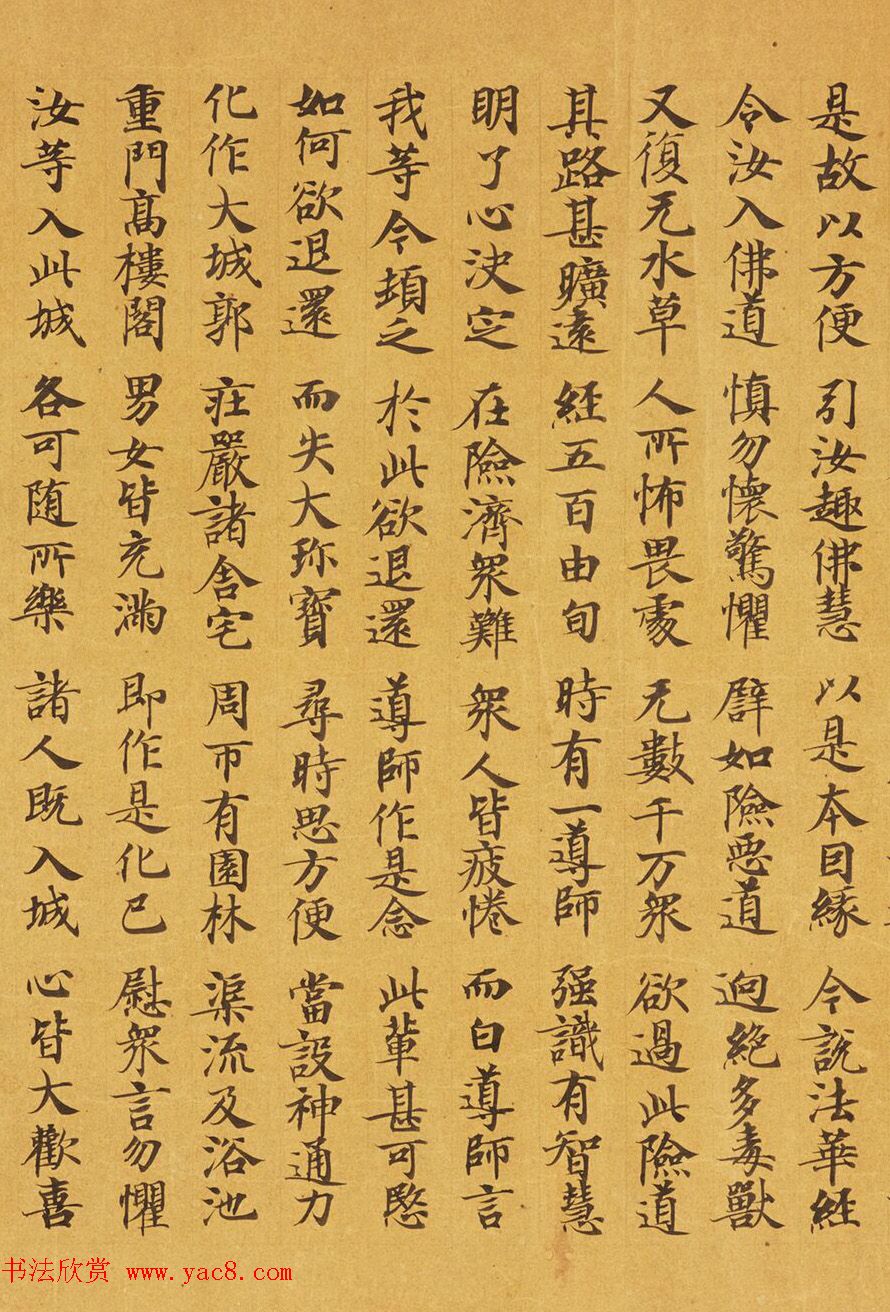 是故以方便 引汝趣佛慧 以是本因縁 今說法華經
令汝入佛道 慎勿懷驚懼 譬如險惡道 迥絕多毒獸
又復无水草 人所怖畏處 无數千万衆 欲過此險道
其路甚曠遠 經五百由旬 時有一導師 强識有智慧
明了心決定 在險濟衆難 衆人皆疲惓 而白導師言
我等今頓乏 於此欲退還 導師作是念 此輩甚可愍
如何欲退還 而失大珎寶 尋時思方便 當設神通力
化作大城郭 莊嚴諸舍宅 周帀有園林 渠流及浴池
重門高樓閣 男女皆充滿 即作是化已 慰衆言勿懼
汝等入此城 各可随所樂 諸人既入城 心皆大歡喜
书法欣赏 www.yac8.com